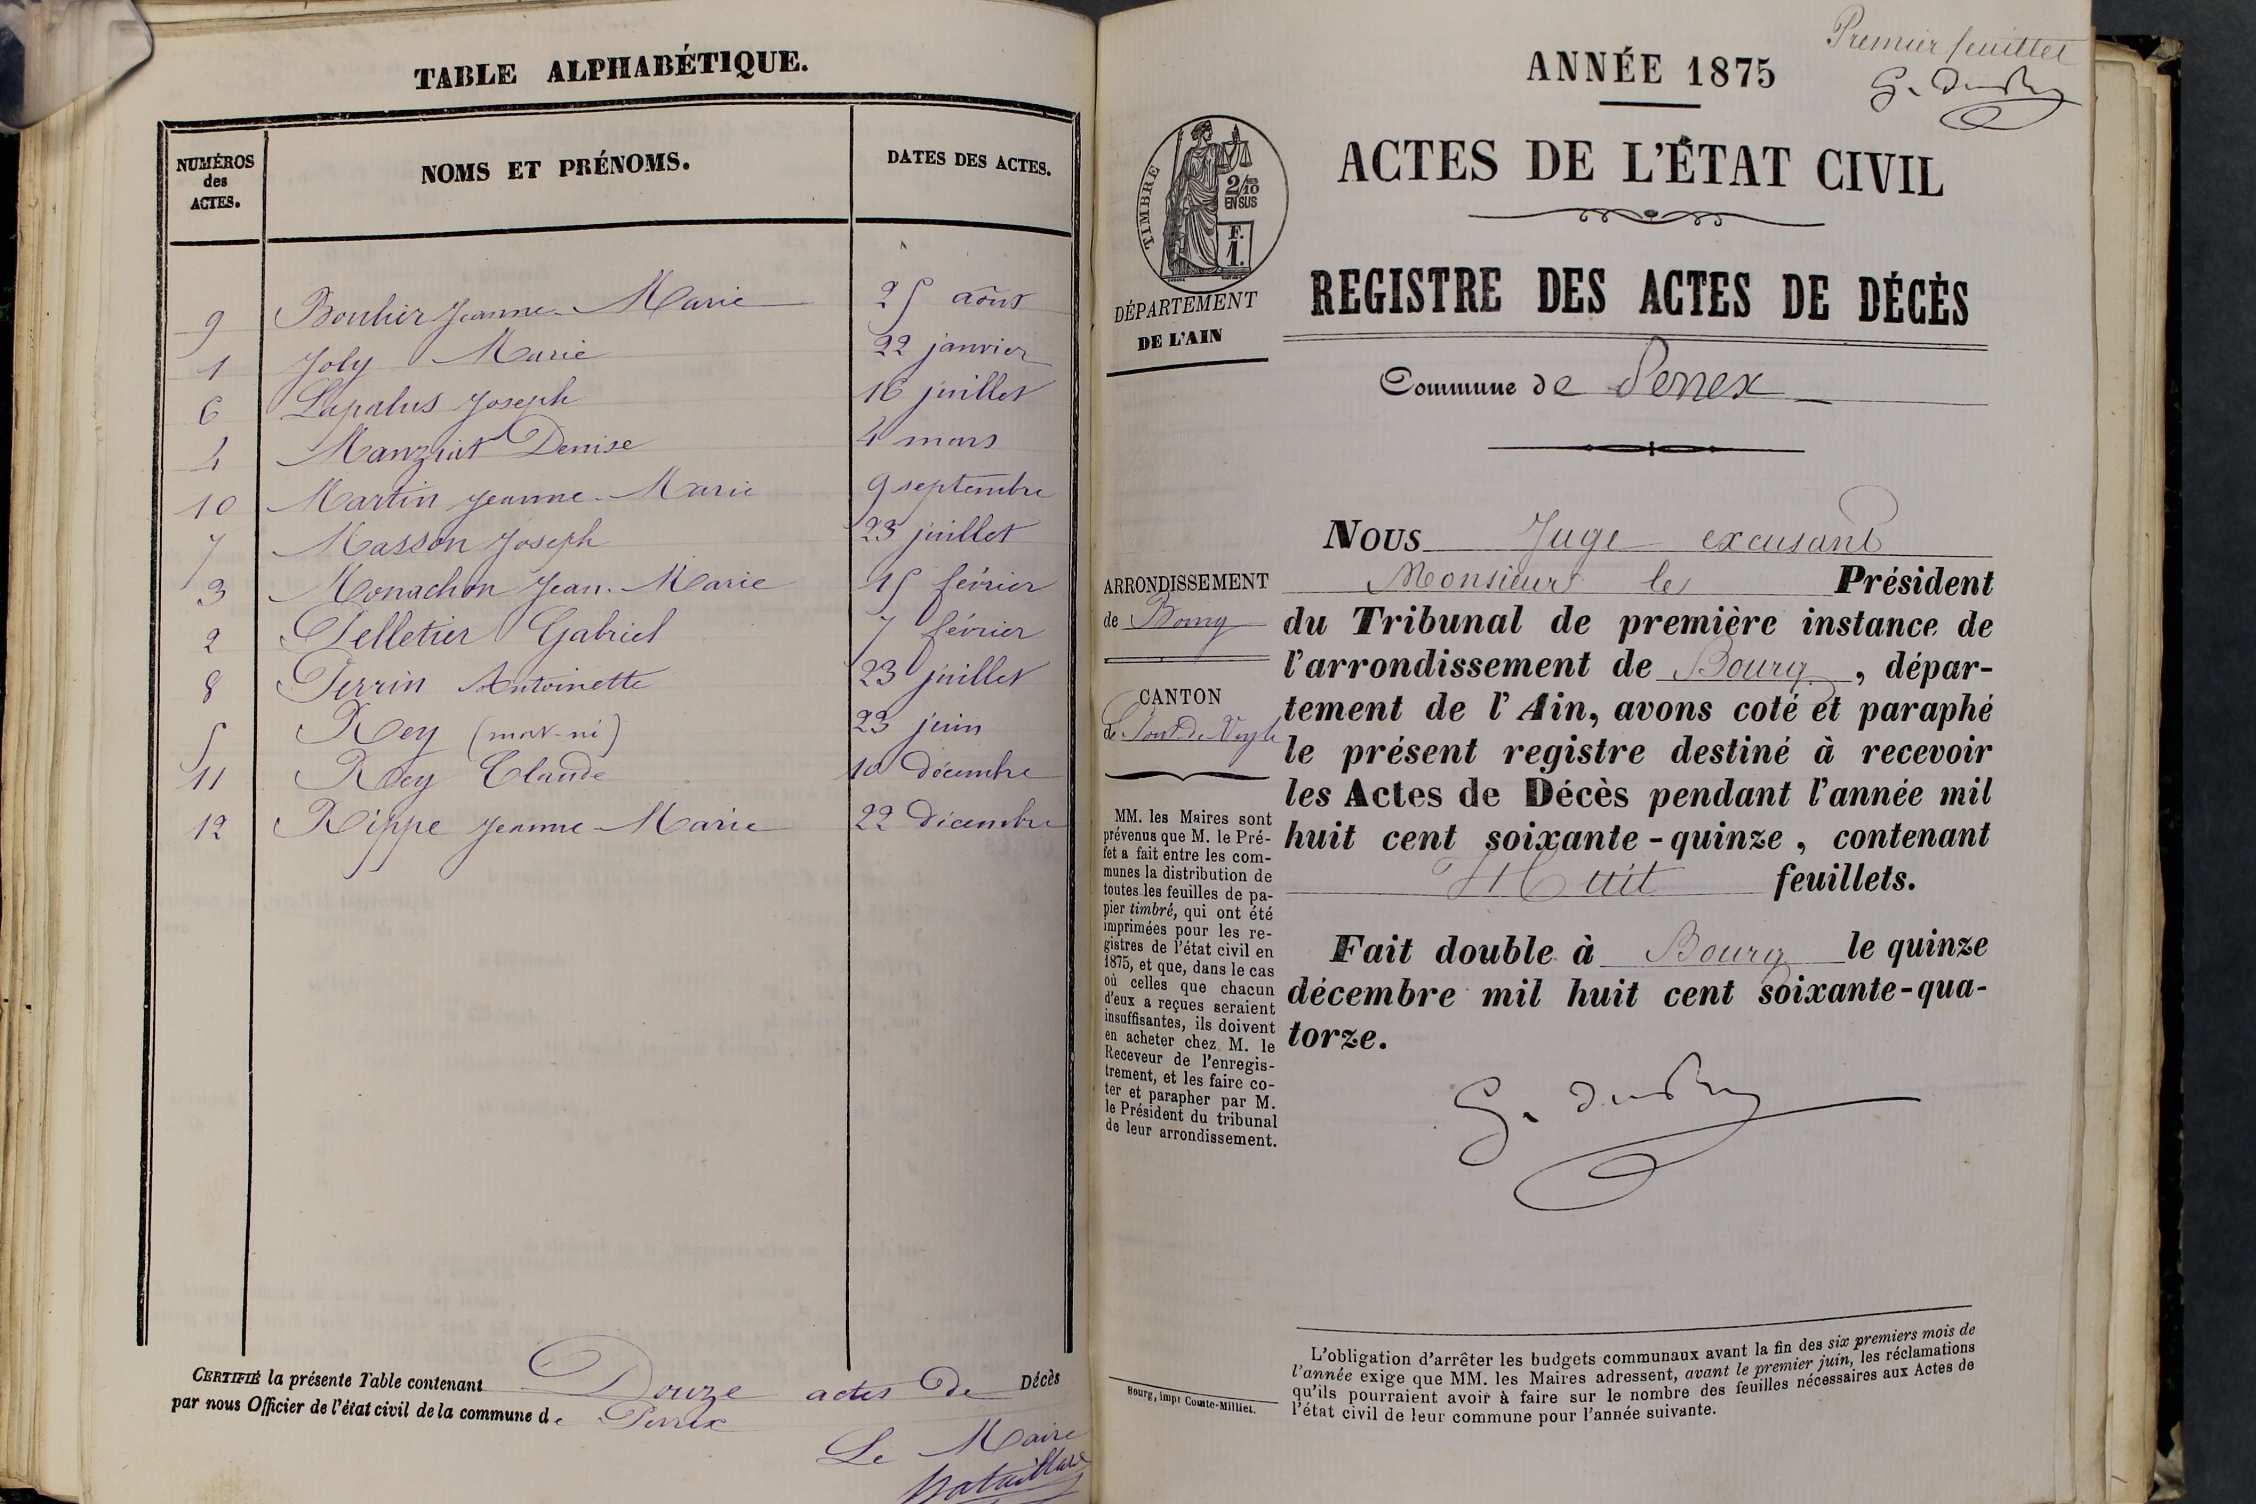 TABLE ALPHABÉTIQUE.
NUMÉROS des ACTES. NOMS ET PRÉNOMS. DATES DES ACTES.
9 Bouhier Jeanne-Marie 25 août
1 Joly Marie 22 janvier
6 Lapalus Joseph 16 juillet
4 Manziat Denise 4 mars
10 Martin Jeanne-Marie 9 septembre
7 Masson Joseph 23 juillet
3 Monachon Jean-Marie 15 février
2 Pelletier Gabriel 7 février
8 Perrin Antoinette 23 juillet
5 Rey (mort-né) 23 juin
11 Rey Claude 10 décembre
12 Rippe Jeanne-Marie 22 décembre
CERTIFIÉ la présente Table contenant Douze actes de Décès
par nous Officier de l'état civil de la commune de Perrex
Le Maire
Premier feuillet
ANNÉE 1875
ACTES DE L'ÉTAT CIVIL
TIMBRE
2/10
EN SUS
F.
1.
DÉPARTEMENT
DE L'AIN
REGISTRE DES ACTES DE DÉCÈS
Commune de Perrex
ARRONDISSEMENT
de Bourg
CANTON
de Pont de Veyle
MM. les Maires sont
prévenus que M. le Pré-
fet a fait entre les com-
munes la distribution de
toutes les feuilles de pa-
pier timbré, qui ont été
imprimées pour les re-
gistres de l'état civil en
1875, et que, dans le cas
où celles que chacun
d'eux a reçues seraient
insuffisantes, ils doivent
en acheter chez M. le
Receveur de l'enregis-
trement, et les faire co-
ter et parapher par M.
le Président du tribunal
de leur arrondissement.
Bourg, impr Comte-Milliet.
NOUS Juge excusant
Monsieur le Président
du Tribunal de première instance de
l'arrondissement de Bourg, dépar-
tement de l'Ain, avons coté et paraphé
le présent registre destiné à recevoir
les Actes de Décès pendant l'année mil
huit cent soixante-quinze, contenant
Huit feuillets.
Fait double à Bourg le quinze
décembre mil huit cent soixante-qua-
torze.
L'obligation d'arrêter les budgets communaux avant la fin des six premiers mois de
l'année exige que MM. les Maires adressent, avant le premier juin, les réclamations
qu'ils pourraient avoir à faire sur le nombre des feuilles nécessaires aux Actes de
l'état civil de leur commune pour l'année suivante.